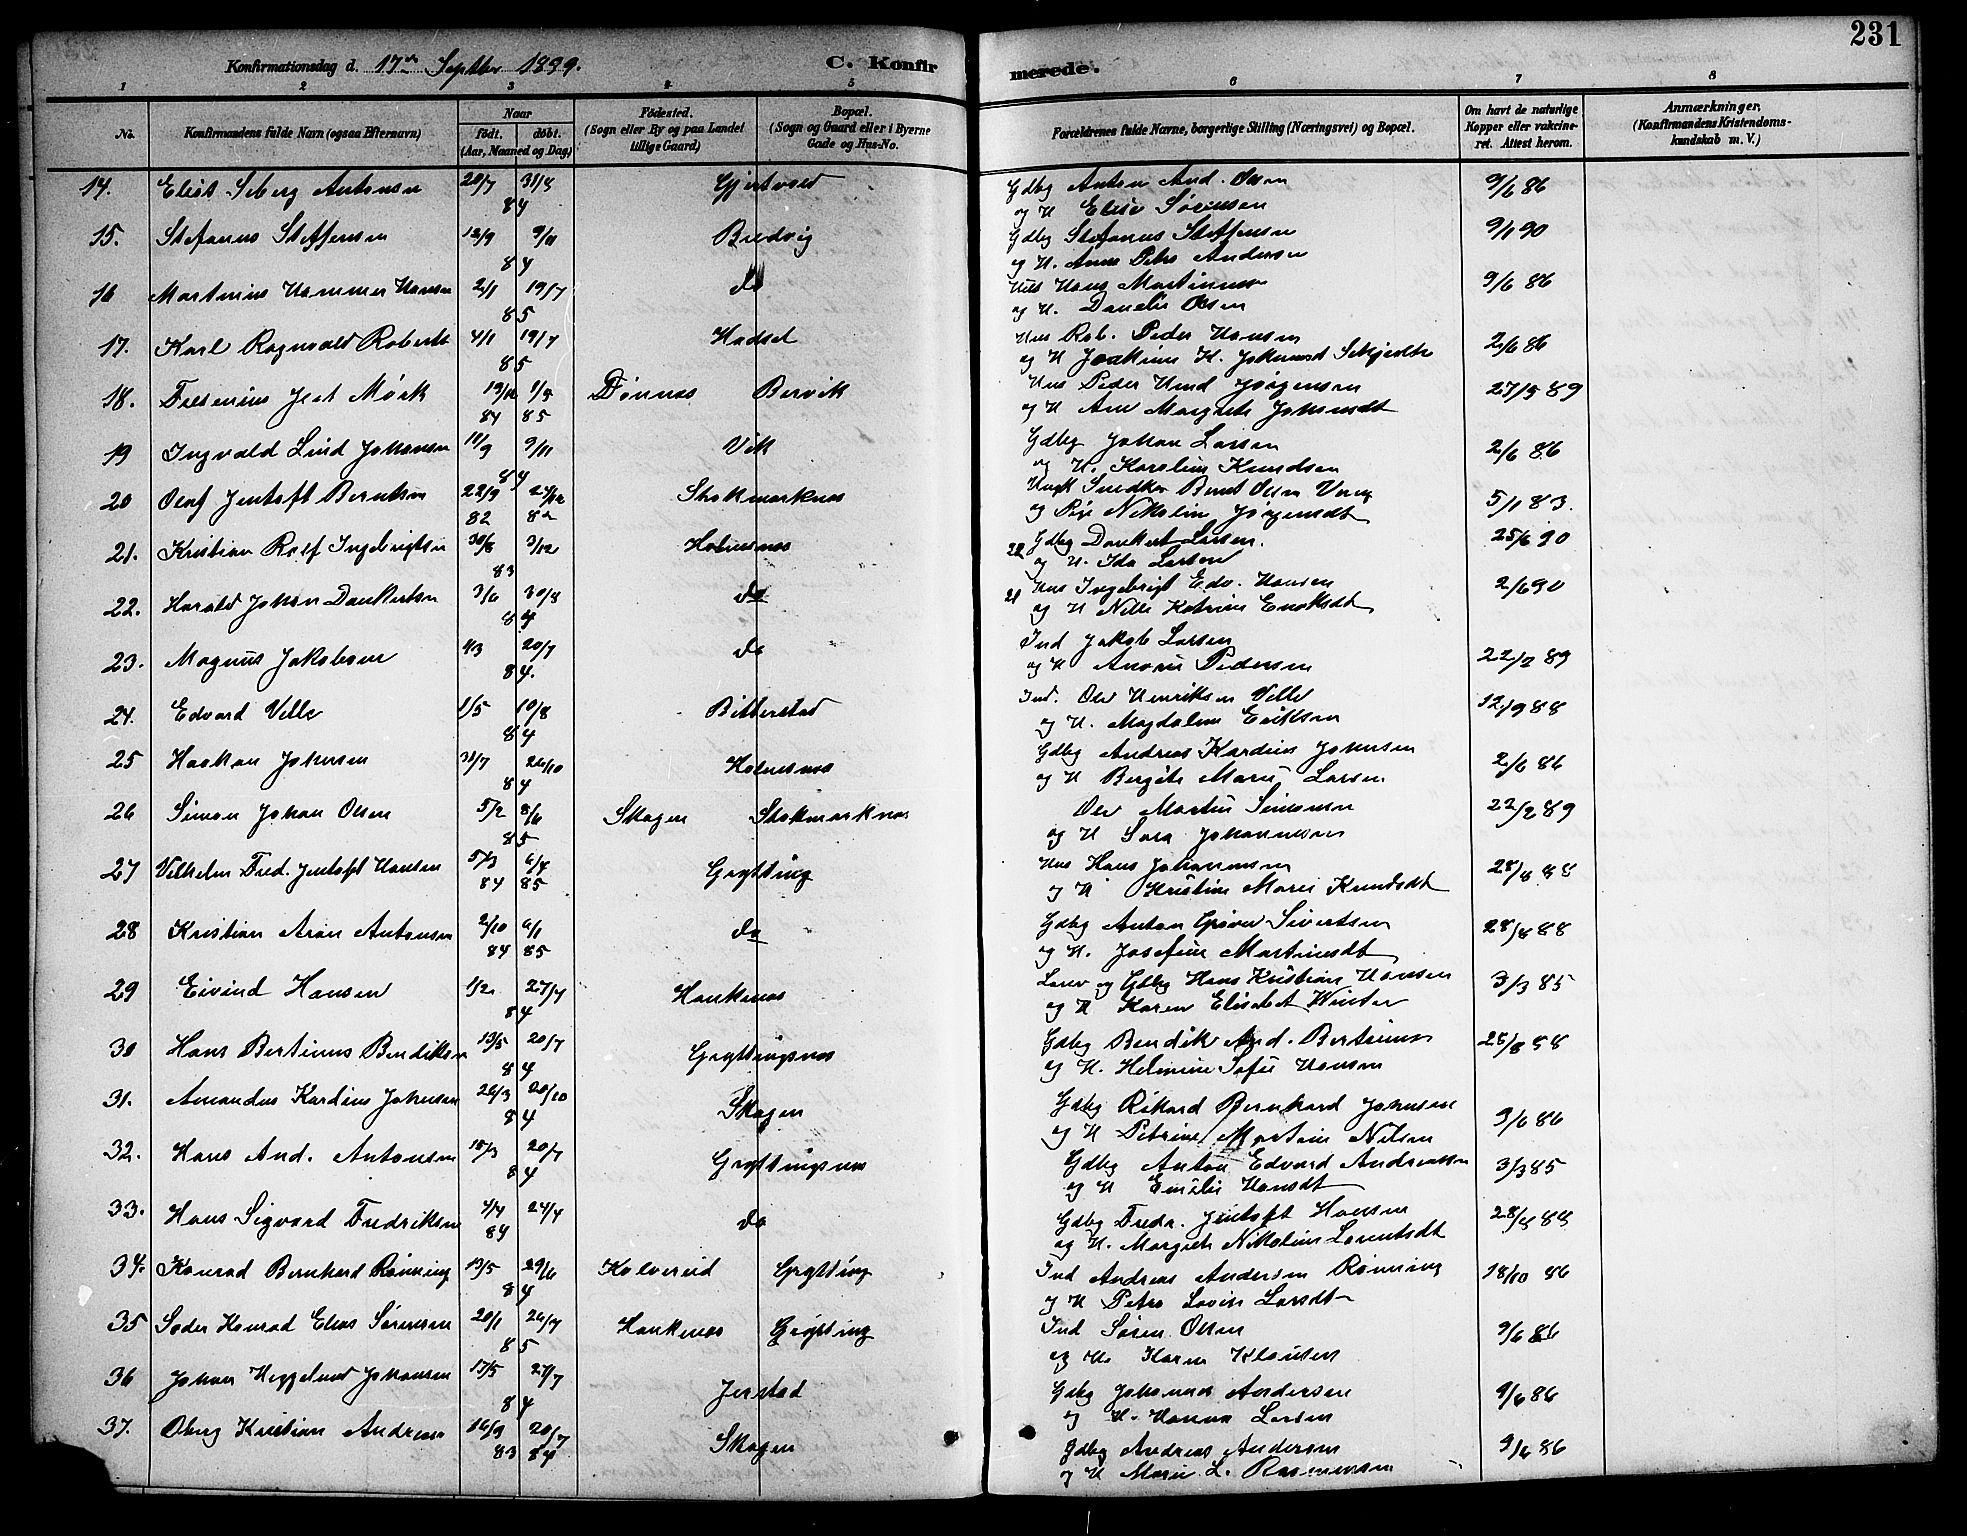 231
Konfirmationsdag d. 17de Septbr 1899. C. Konfirmerede.
1 2 3 4 5 6 7 8
No. Konfirmandens fulde Navn (ogsaa Efternavn) Naar født. døbt. (Aar, Maaned og Dag) Fødested. (Sogn eller By og paa Landet tillige Gaard) Bopæl. (Sogn og Gaard eller i Byerne Gade og Hus-No. Forældrenes fulde Navne, borgerlige Stilling (Næringsvei) og Bopæl. Om havt de naturlige Kopper eller vakcineret. Attest herom. Anmærkninger. (Konfirmandens Kristendomskundskab m. V.)
14. Antonsen 20/7 31/8 84 Gjerstad Gdbg Anton And. Olsen 9/6 86
og H Elise Sørensen
15. Stefanus Steffensen 12/9 9/11 84 Budvig Gdbg Stefanus Steffensen 9/1 90
og H. Anne Petra Andersen
16 Martinus Hammer Hansen 2/1 19/7 85 do Hus Hans Martinussen 9/6 86
og H. Danelie Olsen
17. Karl Ragnvald Roberts 4/1 19/7 85 Hadsel Hus Rob. Peder Hansen 2/6 86
og H Joakime H. Johansd
18. Jest Mørk 19/12 84 1/5 85 Dønnes Bervik Hus Peder Hind Jørgensen 27/5 89
og H Ane Margrete Johansdt
19 Ingvald Lind Johansen 11/9 9/11 84 Vik Gdbg Johan Larsen 2/6 86
og H. Karoline Knudsen
20 Olaf Jentoft Berntsen 22/9 82 Stokmarknes Ungk Snedker Bernt Olsen 5/1 83.
og Pige Nikoline Jørgensdt
21. Kristian Rolf Ingebrigtsen 30/8 2/12 83 Holmsnes 22 Gdbg Dankert Larsen. 25/6 90
og H. Ida Larsen
22. Harald Johan Dankertsen 3/6 30/8 84 do 21 Hus Ingebrigt Edv. Hansen 2/6 90
og H Nille Katrine Enoksdt
23. Magnus Jakobsen 4/3 20/7 84. do Ind Jakob Larsen 22/2 89
og H Pedersen
24. Edvard Velle 1/5 10/8 84 Bitterstad Ind. Ole Henriksen Velle 12/9 88
og H. Magdalene Eriksen
25 Haakon Johnsen 31/7 26/10 84 Holmsnes Gdbg Andreas Kardius Johnsen 2/6 86
og H Bergite Marie Larsen
26 Simon Johan Olsen 5/2 8/6 85 Skagen Stokmarknes Ole Martin Simonsen 22/2 89
og H Sara Johannesen
27 Vilhelm Fred. Jentoft Hansen 5/3 84 6/4 85 Grytting Hus Hans Johannesen 28/8 88
og H Kristine Marie Knudsdt
28 Kristian Aron Antonsen 2/10 84 6/1 85 do Gdbg Anton Grøver Sivertsen 28/8 88
og H. Josefine Martinsdt
29 Eivind Hansen 1/2 27/4 84 Haukenes Lærer og Gdbg Hans Kristian Hansen 3/3 85
og H Karen Elisabet Winter
30 Hans Bertinus Bendiksen 13/5 20/7 84 Gryttingsnes Gdbg Bendik And. Bertinus 28/8 88
og H. Helmine Sofie Hansen
31. Amandus Kardius Johnsen 26/3 20/10 84 Skagen Gdbg Rikard Bernhard Johnsen 9/6 86
og H Petrine Martine Nilsen
32. Hans And. Antonsen 18/3 20/7 84 Gryttingsnes Gdbg Anton Edvard Andreassen 3/3 85
og H Emilie Hansdt
33. Hans Sigvard Fredriksen 4/4 24/4 84 do Gdbg Fredr. Jentoft Hansen 28/8 88
og H. Margrete Nikoline Lorentsdt
34. Konrad Bernhard Rønning 13/5 29/6 84 Kolvereid Grytting Ind Andreas Andersen Rønning 18/10 86
og H Petra Lovise Larsdt
35 Søder Konrad Elias Sørensen 20/1 26/7 85 Haukenes Grytting Ind Søren Olsen 9/6 86
og H. Karen Klausen
36 Johan Heggelund Johansen 17/5 27/7 84 Jerstad Gdbg Johannes Andersen 9/6 86
og H. Hanna Larsen
37. Oberg Kristian Andreas 16/9 83 20/7 84 Skagen Gdbg Andreas Andersen 9/6 86
og H Marie L. Rasmussen